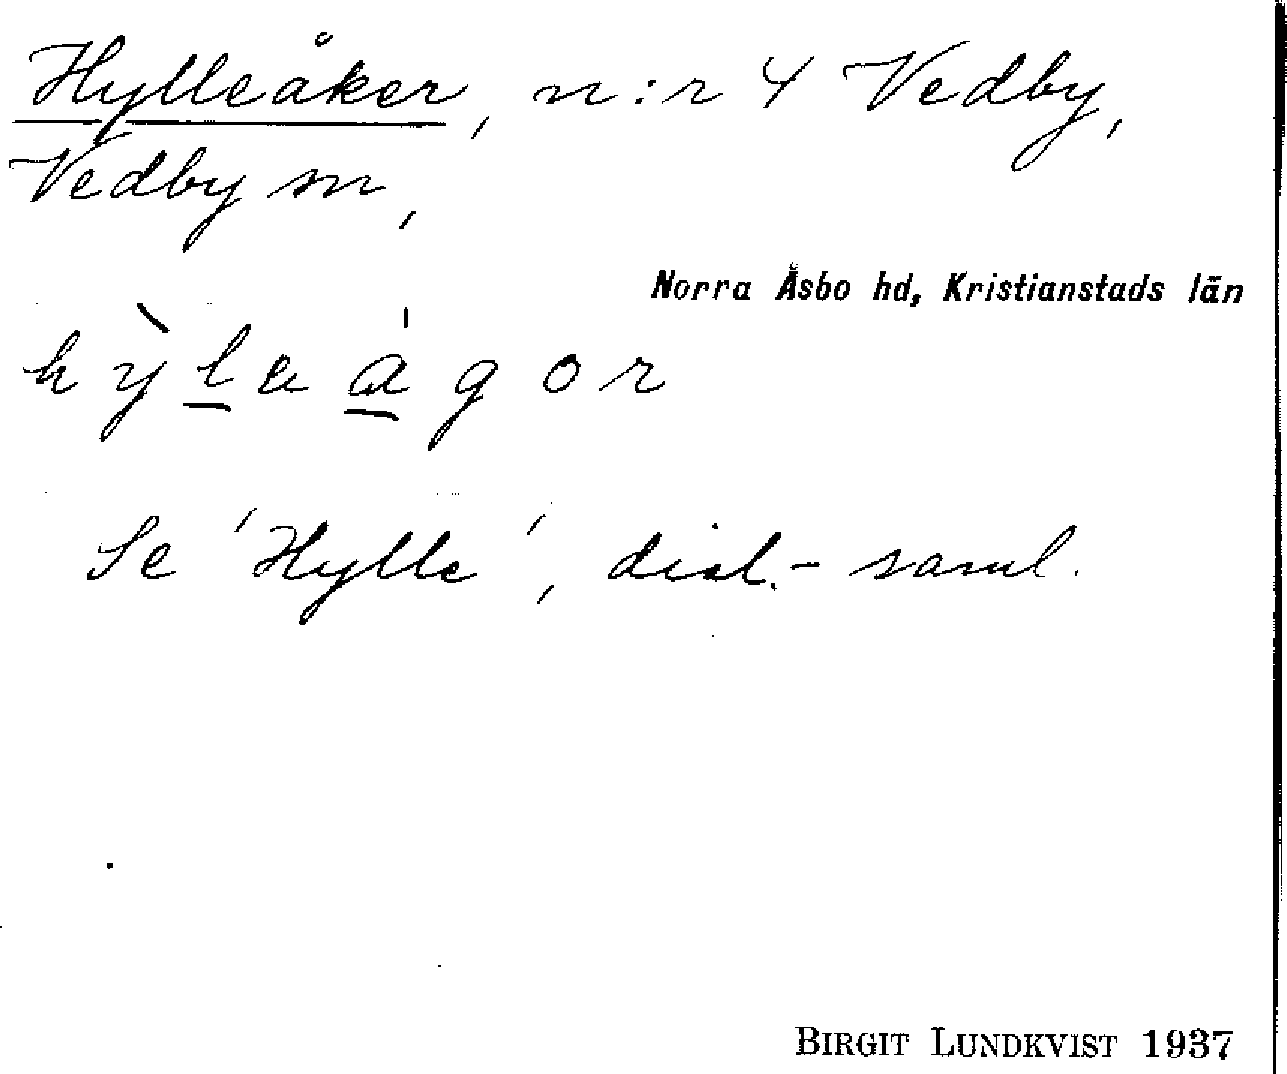 Hylleåker, n:r 4 Vedby,
Vedby sn,
Norra Åsbo hd, Kristianstads län
Se 'Hylle', dial.-saml.
BIRGIT LUNDKVIST 1937